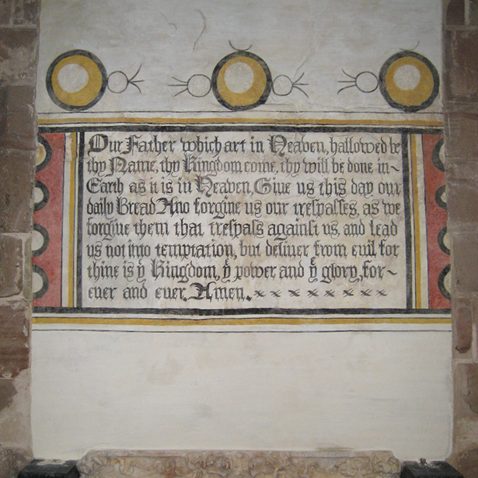 Our Father which art in Heaven, hallowed be
thy Name, thy Kingdom come, thy will be done in~
Earth as it is in Heaven, Giue us this day our
daily Bread And forgiue us our trespasses, as we
forgiue them that trespass against us, and lead
us not into temptation, but deliuer from euil for
thine is yͤ Kingdom, yͤ power and yͤ glory, for~
euer and euer, Amen.